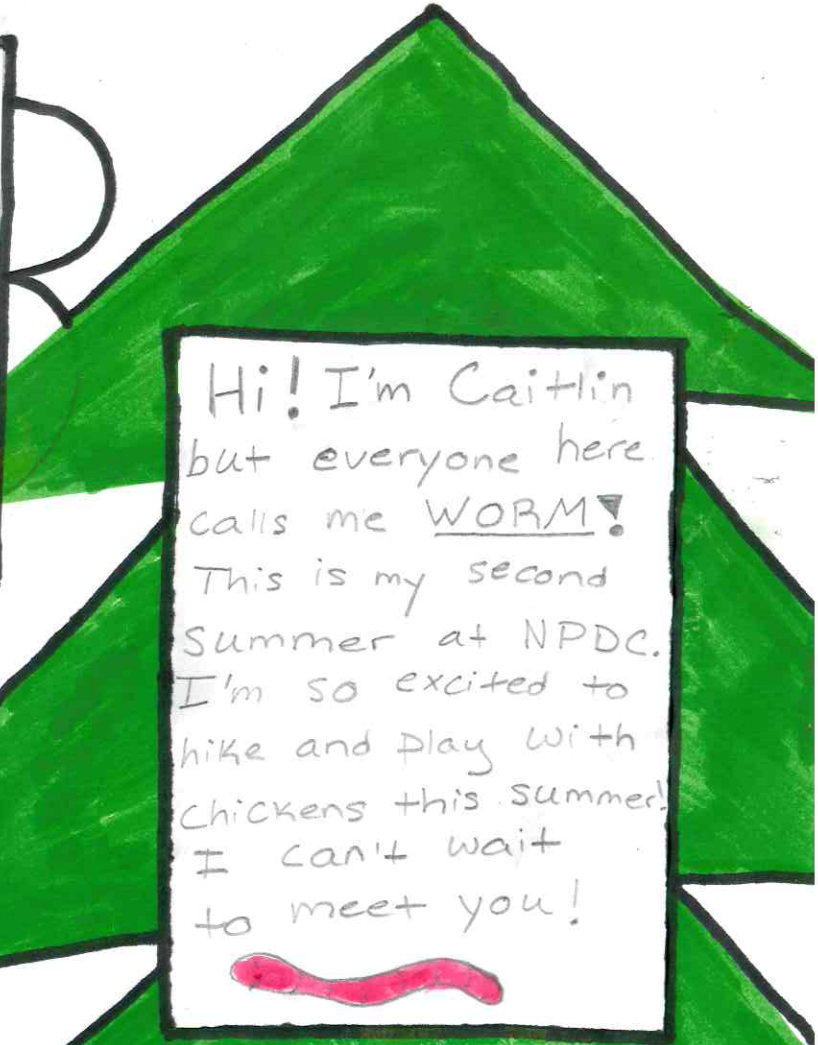 R
Hi! I'm Caitlin
but everyone here
calls me WORM!
This is my second
summer at NPDC.
I'm so excited to
hike and play with
chickens this summer!
I can't wait
to meet you!